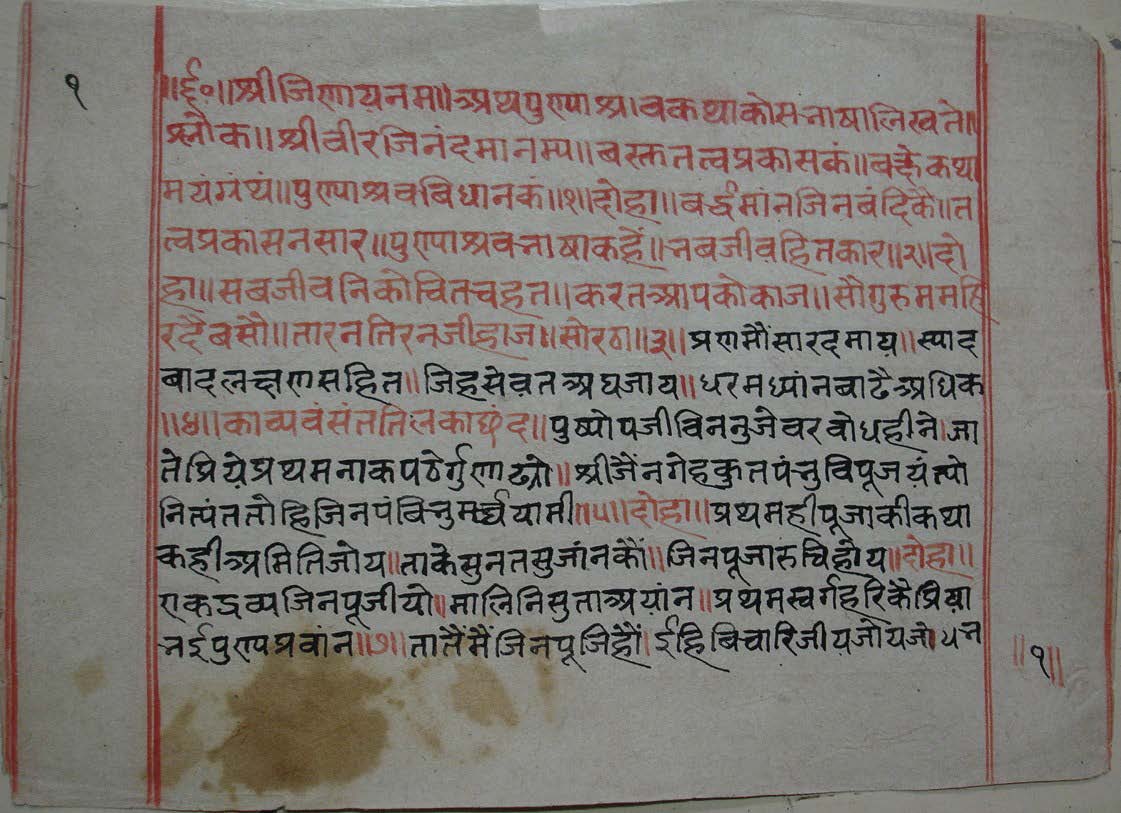 १
॥ई॰॥श्रीजिणायनम॥अथपुण्याश्रवकथाकोसभाषालिख्यते॥
श्लोक॥श्रीवीरजिनंदमानम्य॥बस्ततत्वप्रकासकं॥बक्ष्येकथा
मयंग्रंथं॥पुण्याश्रवबिधानकं॥१॥दोहा॥बर्द्धमांनजिनबंदिकै॥त
त्वप्रकासनसार॥पुण्याश्रवभाषाकहैं॥भबजीवहितकार॥२॥दो
हा॥सबजीवनिकोचितचहत॥करतआपकोकाज॥सौगुरुममहि
रदैबसौ॥तारनतिरनजीहाज॥सोरठा॥३॥प्रणमौंसारदमाय॥स्याद
बादलक्षणसहित॥जिहसेवतअघजाय॥धरमध्यांनबाढैअधिक
॥४॥काव्यवंसंततिलकाछंद॥पुष्पोपजीविनतुजेवरवोधहीने।जा
तेप्रियेप्रथमनाकपठेर्गुणाढ्यो॥श्रीजैंनगेहकुतपंभुविपूजयंत्यो
नित्यंततोहिजिनपंविभुमर्च्चयामी॥५॥दोहा॥प्रथमहीपूजाकीकथा
कहीअमितिजोय॥ताकेसुनतसुजांनकौं॥जिनपूजारुचिहोय॥दोहा॥
एकद्रव्यजिनपूजीयो॥मालिनिसुताअयांन॥प्रथमस्वर्गहरिकैप्रिया
भईपुण्यप्रवांन॥७॥तातैंमैंजिनपूजिहौं।ईहिबिचारिजीयजोयजोधन
॥१॥